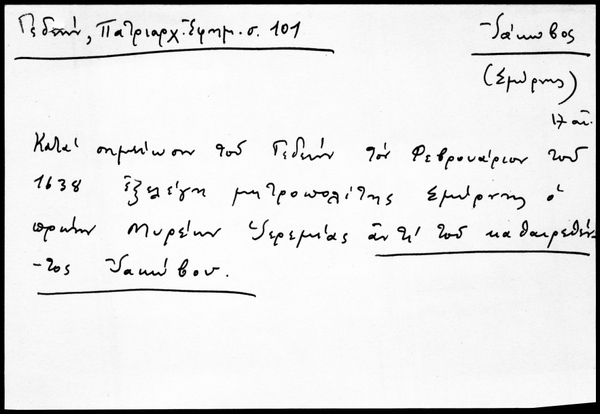 Γεδεών, Πατριαρχ. Ἐφημ. σ. 101
Ἰάκωβος
(Σμύρνης)
17 αἰ.
Κατά σημείωσιν τοῦ Γεδεών τόν Φεβρουάριον τοῦ
1638 ἐξελέγη μητροπολίτης Σμύρνης ὁ
πρώην Μυρέων Ἱερεμίας ἀντί τοῦ καθαιρεθέν-
-τος Ἰακώβου.